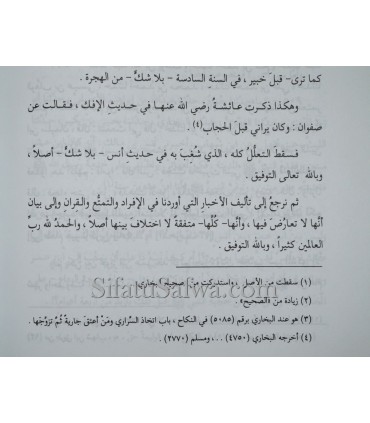 كما ترى- قبلَ خيبر ، في السنةِ السادسة - بلا شكٍّ - من الهجرة .
وهكذا ذكرت عائشةُ رضي الله عنها في حديثِ الإفك ، فقالت عن
صفوان : وكان يراني قبلَ الحجاب(٤) .
فسقطَ التعلُّلُ كله ، الذي شُغب به في حديث أنس - بلا شكٍّ - أصلاً ،
وبالله تعالى التوفيق .
ثم نرجعُ إلى تأليف الأخبارِ التي أوردنا في الإفراد والتمتُّعِ والقِرانِ وإلى بيان
أنَّها لا تعارُضَ فيها ، وأنَّها- كُلَّها- متفقةٌ لا اختلافَ بينها أصلاً ، والحمدُ لله ربِّ
العالمين كثيراً ، وبالله التوفيق .
(١) سقطت من الأصل ، واستدركت من صحيح البخاري .
(٢) زيادة من «الصحيح» .
(٣) هو عند البخاري برقم (٥٠٨٥) في النكاح ، باب اتخاذ السَّراري ومَنْ أعتق جاريةً ثُمَّ تزوَّجها .
(٤) أخرجه البخاري (٤٧٥٠) . . ، ومسلم (٢٧٧٠) .
SifatuSalwa.com